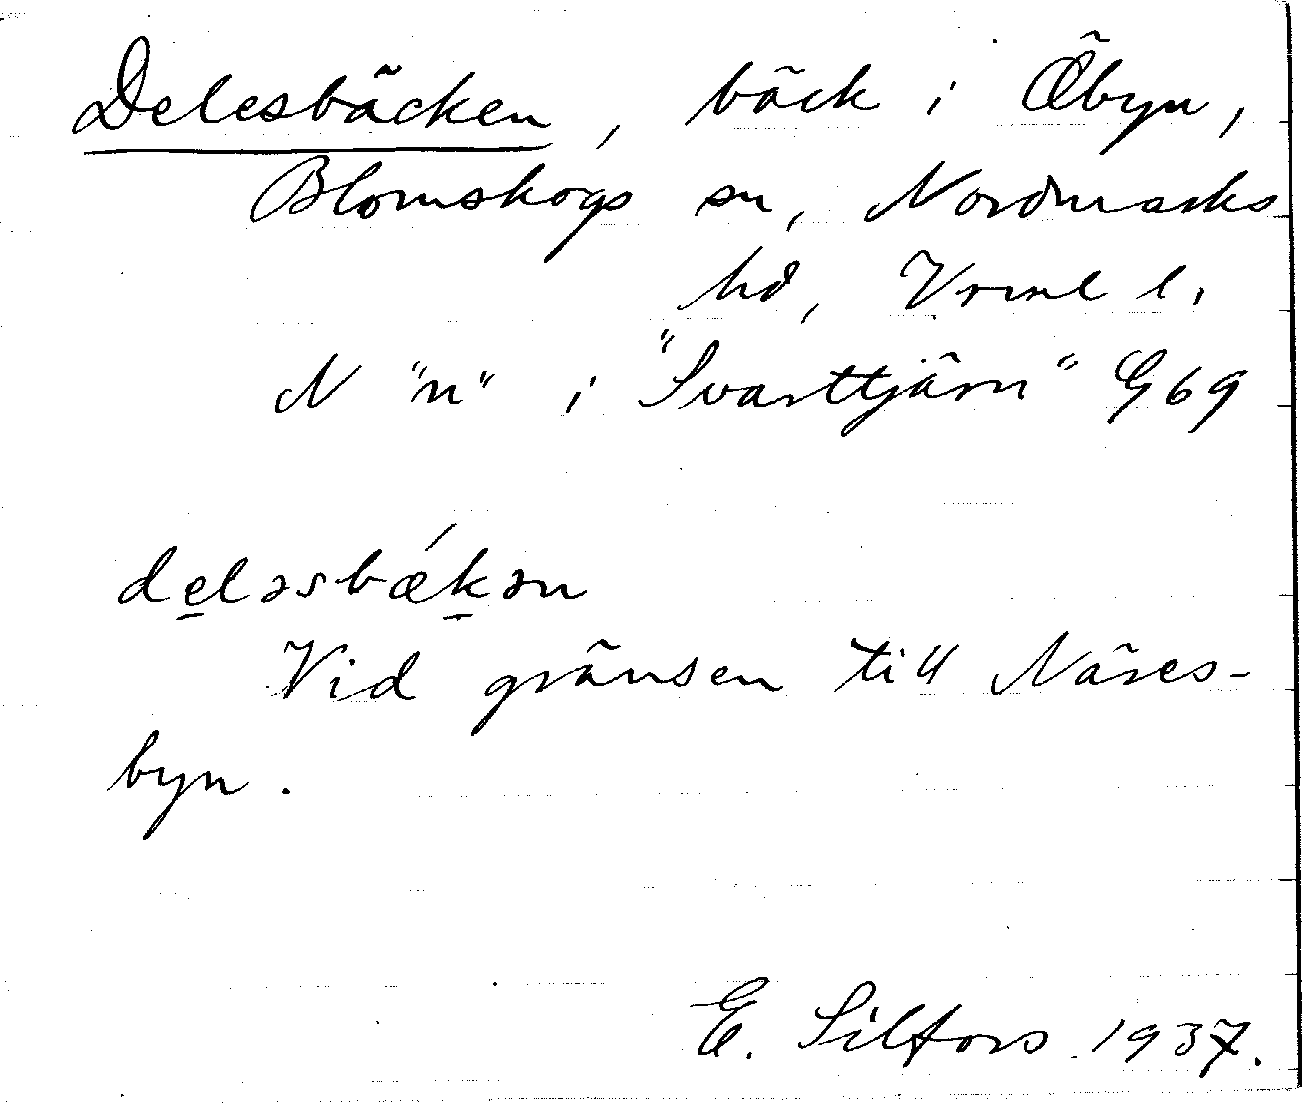 Delesbäcken, bäck i Öbyn,
Blomskogs sn, Nordmarks
hd, Vrml l.
N "n" i "Svarttjärn" G 69
deləsbǽkən
Vid gränsen till Näres-
byn.
E. Silfors 1937.